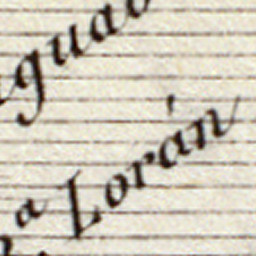 guad
ª Lorán